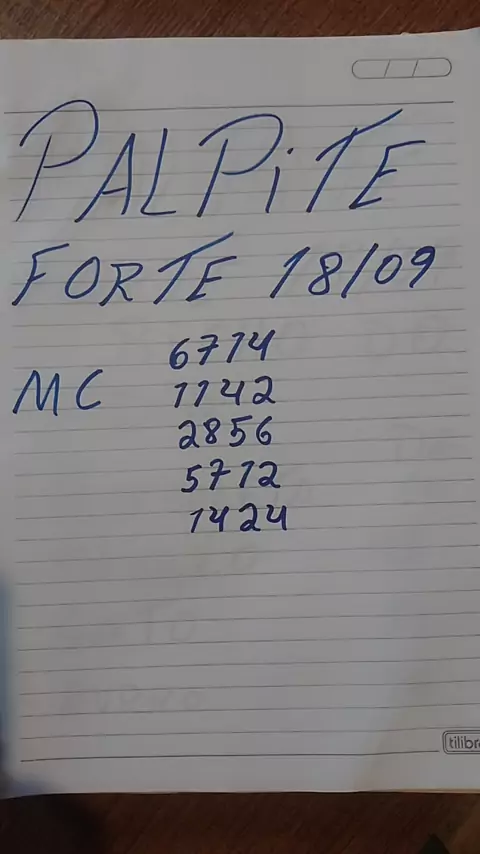 PALPiTE
FORTE 18/09
6714
MC 1142
2856
5712
1424
tilibr